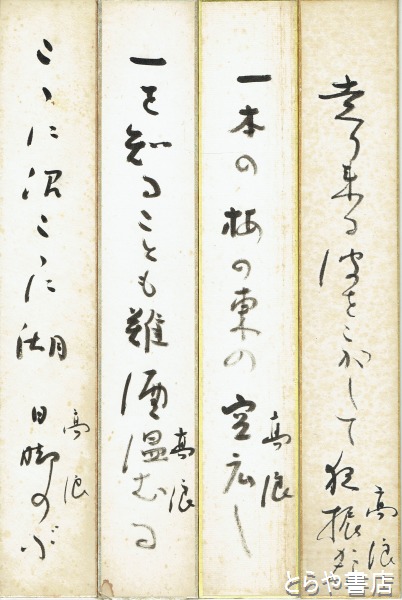 走り来る波をこがして
高浪
一本の梅の東の空広し
高浪
一を知ることも難酒温むる
高浪
ここに沼ここに湖日脚のぶ
高浪
とらや書店